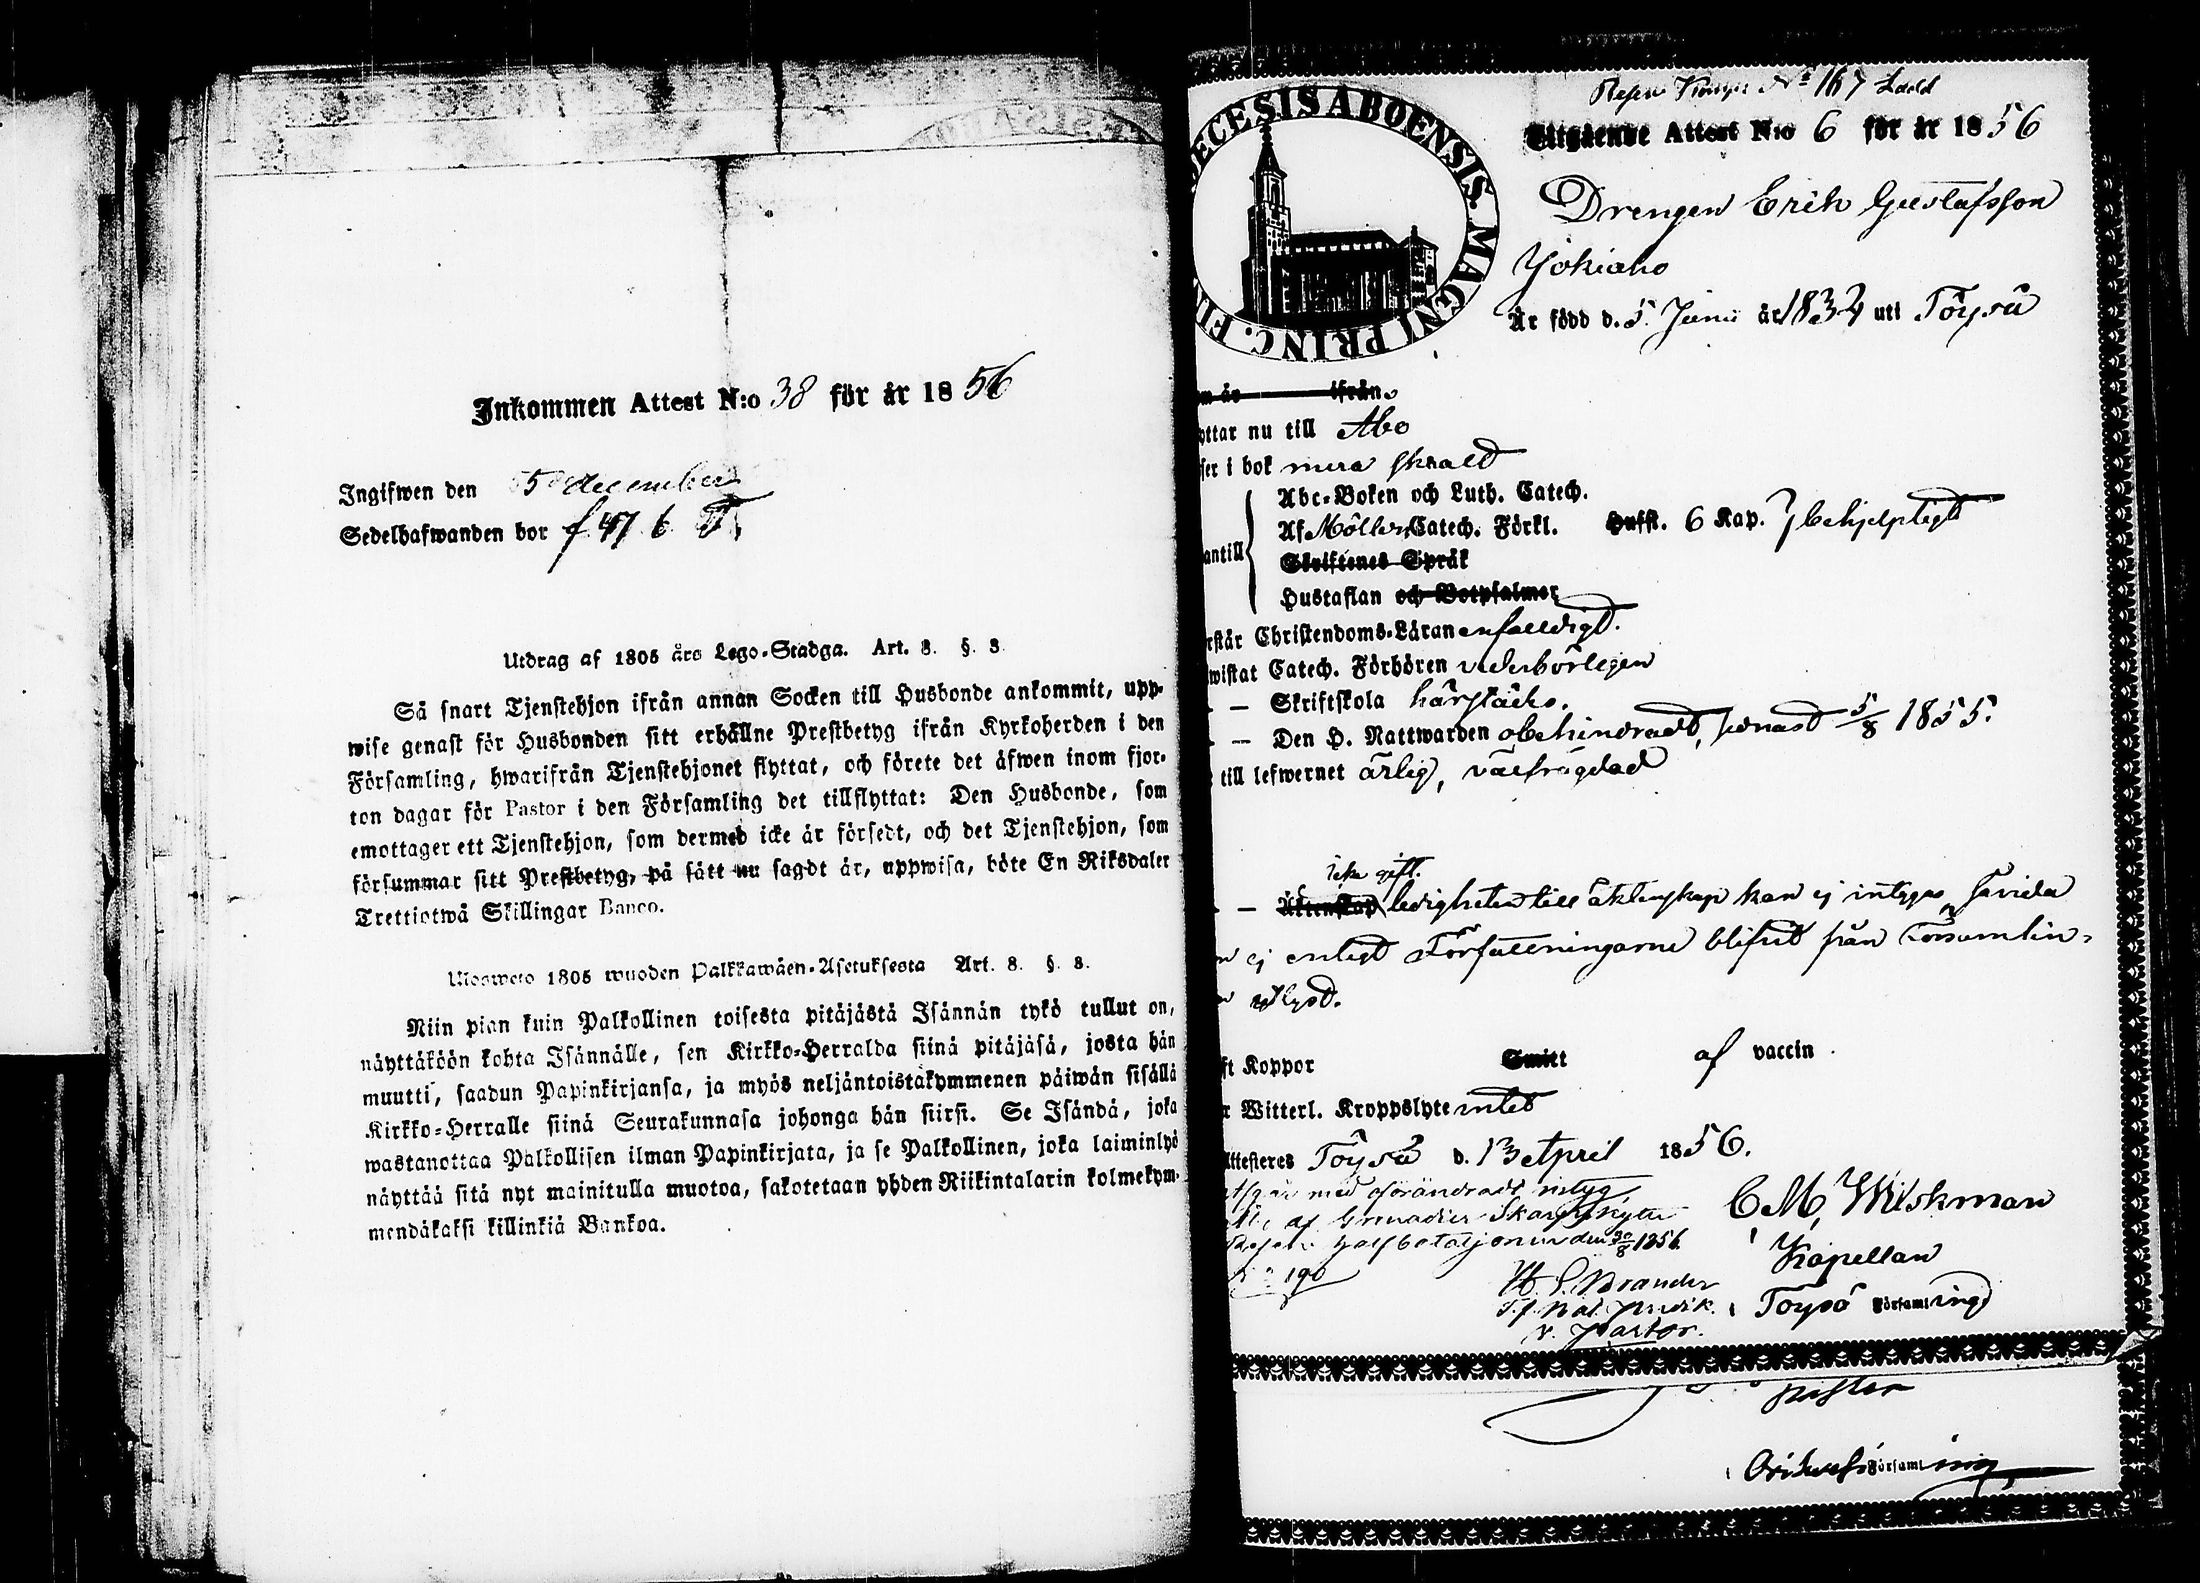 Inkommen Attest N:o 38 för år 1856
Ingifwen den 5 december
Sedelhafwanden bor
Utdrag af 1805 års Lego-Stadga. Art. 8. §. 8.
Så snart Tjenstehjon ifrån annan Socken till Husbonde ankommit, upp-
wise genast för Husbonden sitt erhållne Prestbetyg ifrån Kyrkoherden i den
Församling, hwarifrån Tjenstehjonet flyttat, och förete det äfwen inom fjor-
ton dagar för Pastor i den Församling det tillflyttat: Den Husbonde, som
emottager ett Tjenstehjon, som dermed icke är försedt, och det Tjenstehjon, som
försummar sitt Prestbetyg, på sätt nu sagdt är, uppwisa, böte En Riksdaler
Trettiotwå Skillingar Banco.
Ulosweto 1805 wuoden Palkkawäen-Asetuksesta Art. 8. §. 8.
Niin pian kuin Palkollinen toisesta pitäjästä Isännän tykö tullut on,
näyttäköön kohta Isännälle, sen Kirkko-Herralda siinä pitäjäsä, josta hän
muutti, saadun Papinkirjansa, ja myös neljäntoistakymmenen päiwän sisällä
Kirkko-Herralle siinä Seurakunnasa johonga hän siirsi. Se Isändä, joka
wastanottaa Palkollisen ilman Papinkirjata, ja se Palkollinen, joka laiminlyö
näyttää sitä nyt mainitulla muotoa, sakotetaan yhden Riikintalarin kolmekym-
mendäkaksi killinkiä Bankoa.
ECESIS ABOENSIS. MAGNI PRINC. FIN
N:o 167
Utgående Attest N:o 6 för år 1856
Drengen Erik Gustafsson
Jokiaho
Är född d. 5 Junii år 1834 uti Töysä
m år ifrån
yttar nu till Åbo
ser i bok mera skrald
Abc-Boken och Luth. Catech.
Af Möllers Catech. Förkl. Hussl. 6 Kap. behjelpligt
antill
Skriftenes Språk
Hustaflan och Botpsalmer
rstår Christendoms-Läran enfaldigt.
wistat Catech. Förhören vederbörligen
— Skriftskola härstädes.
— Den H. Nattwarden obehindradt, senast 5/8 1855.
till lefwernet ärlig, välfrägdad
icke gift.
— Äktenskap ledigheten till äktenskap kan ej intygas, såvida
ej enligt Författningarne blifvit från Församlin-
utlyst.
ft Koppor Smitt af vaccin
r Witterl. Kroppslyte intet
Attesteres Töysä d. 13 April 1856.
med oförändradt intyg
af Grenadier Skarpskytte
den 30/8 1856
190
C M Wiskman
Kapellan
i Töysä Församling
H. S. Brander
v. Pastor.
Pastor
i Orihvesi Församling